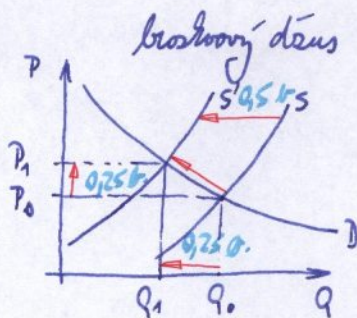 broskvový džus
P
S' 0,5 b. S
P₁
0,25 b.
P₀
0,25 b.
D
Q₁ Q₀ Q